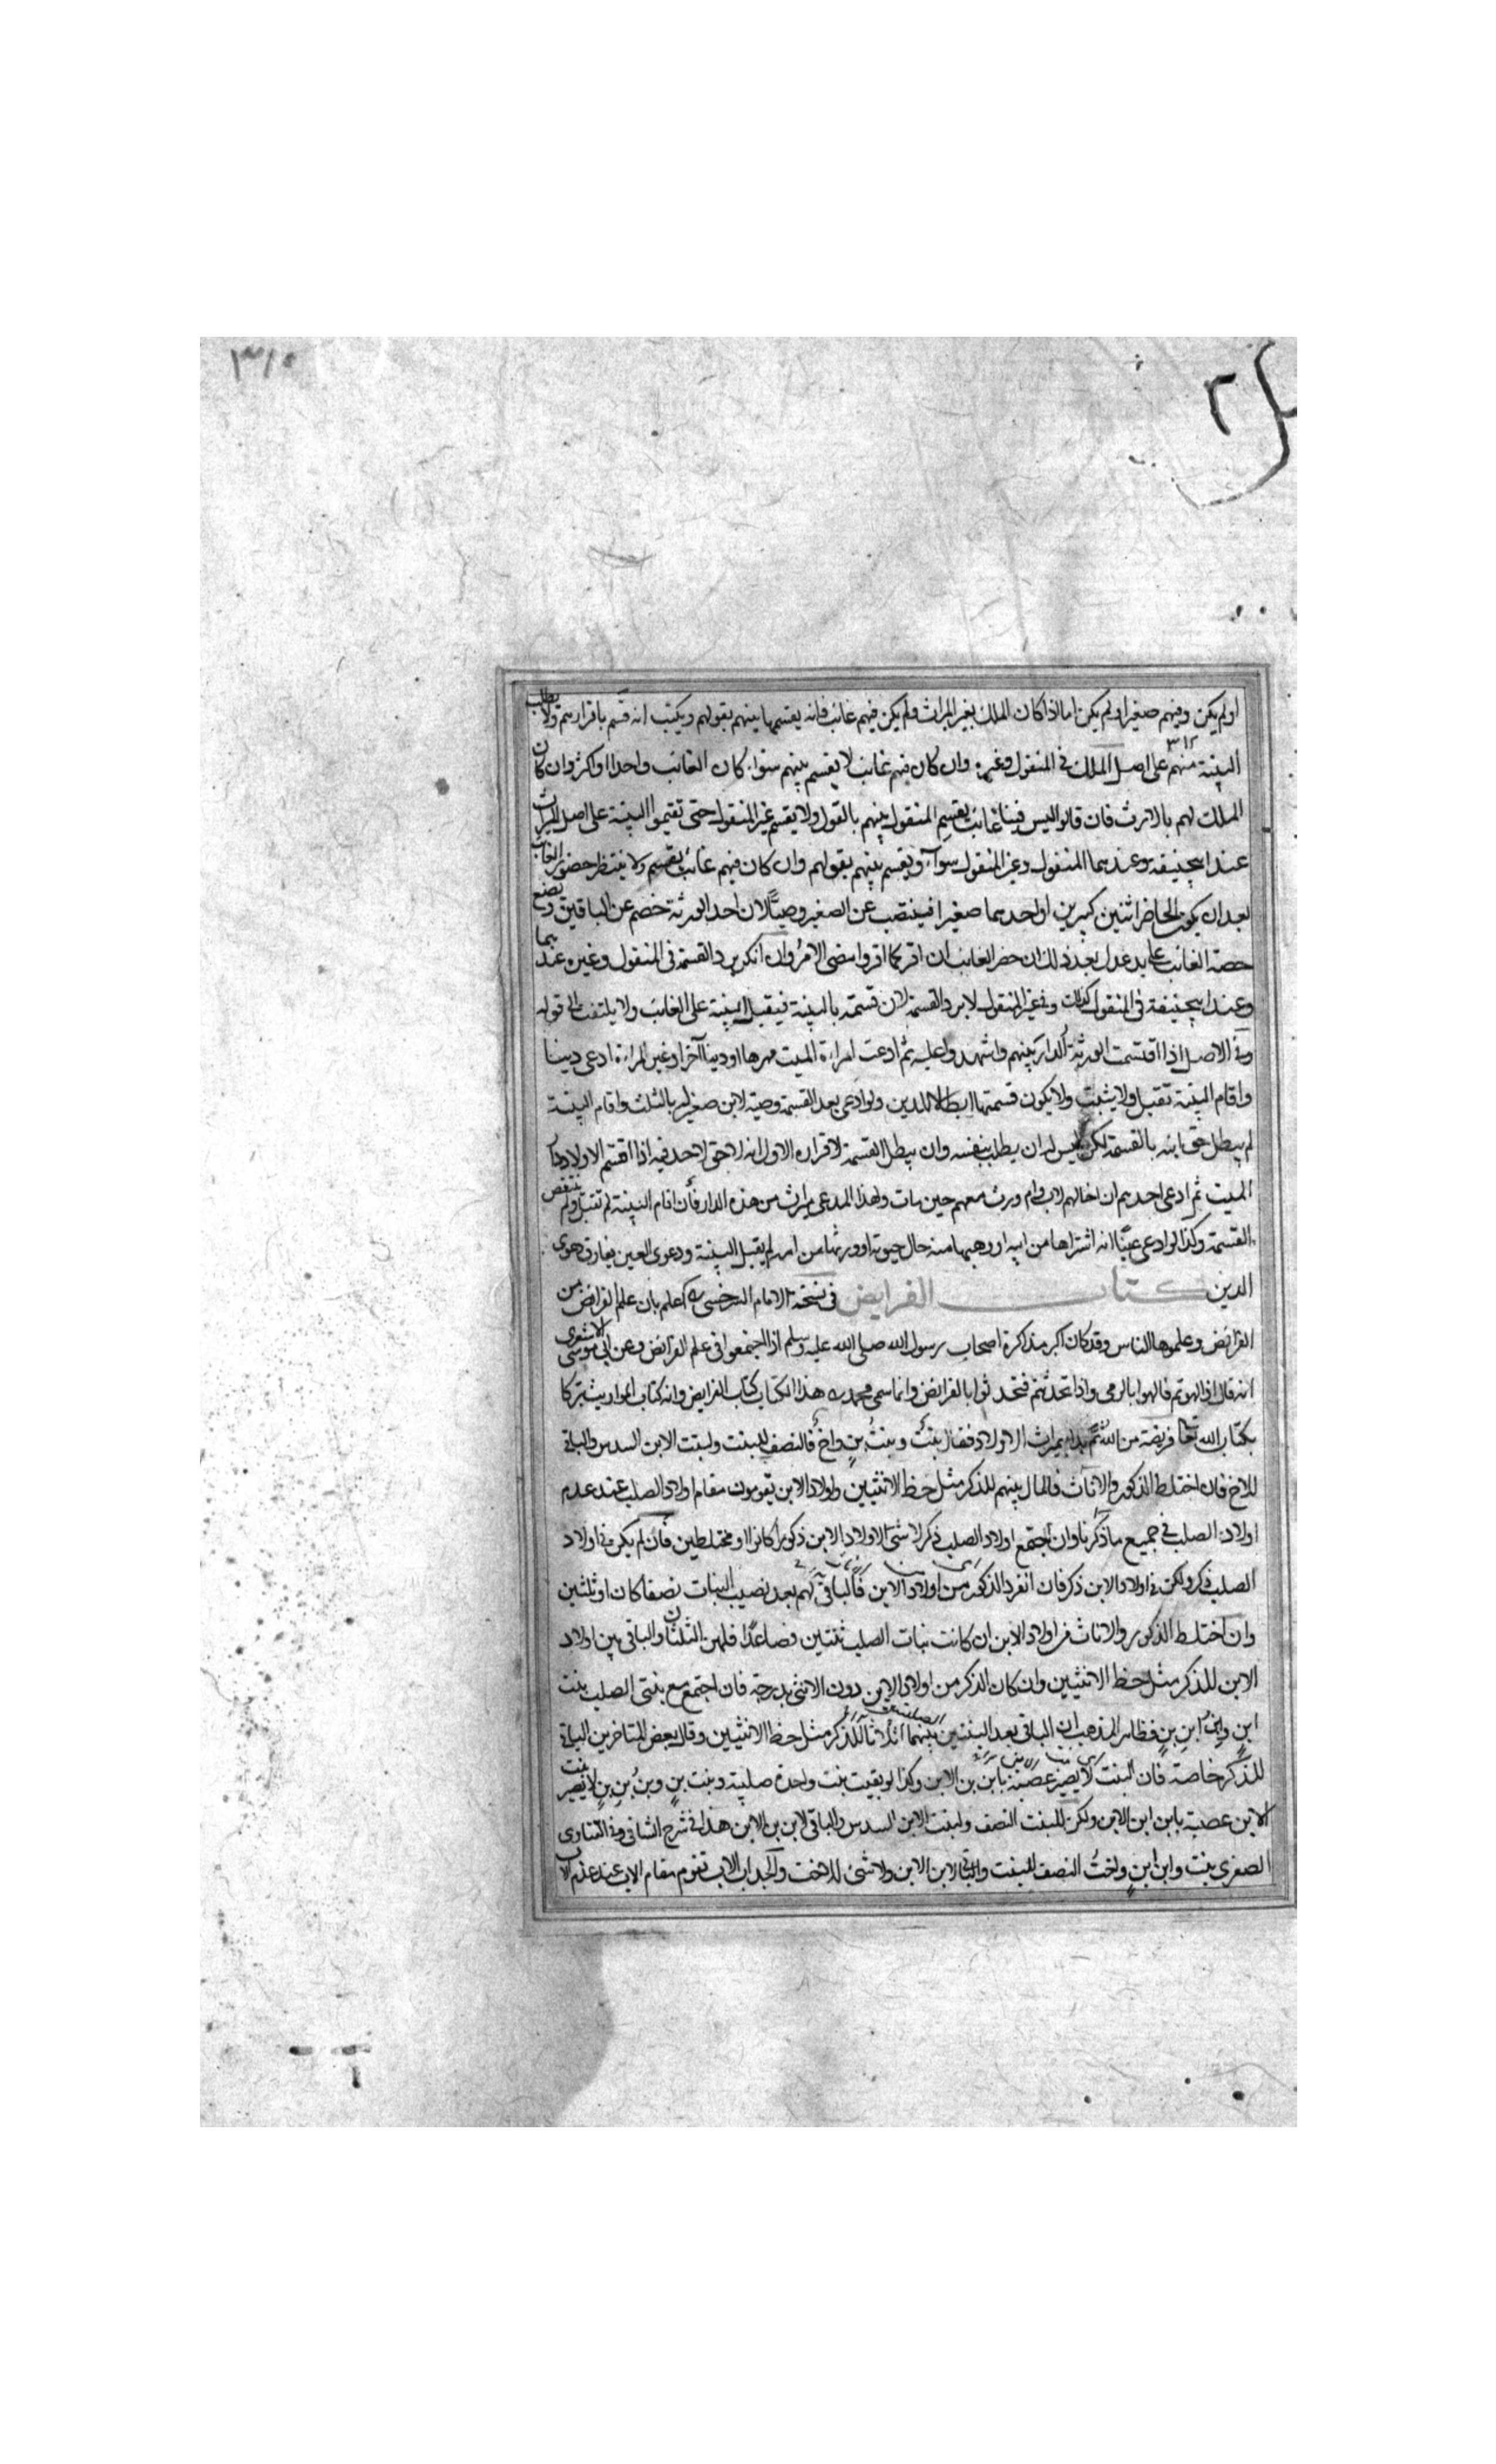 ٣١٥
او لم يكن وفيهم صغير او لم يكن اما اذا كان الملك بغير الميراث ولم يكن فيهم غائب فانه يقسمها بينهم بقولهم ويكتب انه قسم باقرارهم ولا يطلب
البينة منهم على اصل الملك في المنقول وغيره وان كان فيهم غائب لا يقسم بينهم سواء كان الغائب واحدا او اكثر وان كان
الملك لهم بالارث فان قالوا ليس فينا غائب يقسم المنقول بينهم بالقول ولا يقسم غير المنقول حتى تقيموا البينة على اصل الميراث
عند ابيحنيفه وعندهما المنقول وغير المنقول سواء ويقسم بينهم بقولهم وان كان فيهم غائب يقسم ولا ينتظر حضور الغائب
بعد ان يكون الحاضر اثنين كبيرين او احدهما صغيرا فينصب عن الصغير وصيا لان احد الورثة خصم عن الباقين ويضع
حصة الغائب على يد عدل بعد ذلك ان حضر الغائب ان اقر كما اقروا مضى الامر وان انكر يرد القسمة في المنقول وغيره عندهما
وعند ابيحنيفة في المنقول كذلك وفي غير المنقول لا يرد القسمة لان قسمته بالبينة فيقبل البينة على الغائب ولا يلتفت الى قوله
وفي الاصل اذا اقتسمت الورثة الدار بينهم واشهدوا عليه ثم ادعت امراءة الميت مهرها او دينا آخر او غير المراءة ادعى دينا
واقام البينة تقبل ولا يثبت ولا يكون قسمتها ابطالا للدين ولو ادعى بعد القسمة وصية لابن صغير له بالثلث واقام البينة
لم يبطل حق ابنه بالقسمة لكن ليس له ان يطلب بنفسه وان يبطل القسمة لاقراره الاول انه لا حق لاحد فيه اذا اقتسم الاولاد دار
الميت ثم ادعى احدهم ان اخا لهم لاب وام ورث معهم حين مات ولهذا المدعي ميراث من هذه الدار فان اقام البينة لم تقبل ولم ينتقض
القسمة وكذا لو ادعى عينا انه اشتراها من ابيه او وهبها منه حال حيوته او ورثها من امه لم يقبل البينة ودعوى العين يفارق دعوى
الدين كتاب الفرايض في نسخة الامام السرخسي اعلم بان علم الفرائض من
الفرائض وعلموها الناس وقد كان اكبر مذاكرة اصحاب رسول الله صلى الله عليه وسلم اذا اجتمعوا في علم الفرائض وعن ابي موسى الاشعري
انه قال اذا لهوتم فالهوا بالرمي واذا تحدثتم فتحدثوا بالفرايض وانما سمى محمد هذا الكتاب كتاب الفرايض وانه كتاب المواريث تبركا
بكتاب الله تعا فريضة من الله ثم بدا بميراث الاولاد فقال بنت وبنت بن واخ فالنصف للبنت ولبنت الابن السدس والباقي
للاخ فان اختلط الذكور والاناث فالمال بينهم للذكر مثل حظ الانثيين واولاد الابن يقومون مقام اولاد الصلب عند عدم
اولاد الصلب في جميع ما ذكرنا وان اجتمع اولاد الصلب ذكر لا شئ لاولاد الابن ذكورا كانوا او مختلطين فان لم يكن في اولاد
الصلب ذكر ولكن في اولاد الابن ذكر فان انفرد الذكور من اولاد الابن فالباقي لهم بعد نصيب البنات نصفا كان او ثلثين
وان اختلط الذكور والاناث من اولاد الابن ان كانت بنات الصلب ثنتين فصاعدا فلهن الثلثان والباقي بين اولاد
الابن للذكر مثل حظ الانثيين وان كان الذكر من اولاد الابن دون الانثى بدرجة فان اجتمع مع بنتي الصلب بنت
ابن وابن ابن بن فظاهر المذهب ان الباقي بعد البنتين بينهما اثلاثا للذكر مثل حظ الانثيين وقال بعض المتاخرين الباقي
للذكر خاصة فان البنت لا يصير عصبة بابن بن الابن وكذا لو بقيت بنت واحدة صلبية وبنت بن وبن بن بن لا يصير بنت
الابن عصبة بابن ابن الابن ولكن للبنت النصف ولبنت الابن السدس والباقي لابن بن الابن هذا في شرح الشافي وفي الفتاوى
الصغرى بنت وابن ابن واخت النصف للبنت والباقي لابن الابن ولا شئ للاخت والجد اب الاب تقوم مقام الاب عند عدم الاب